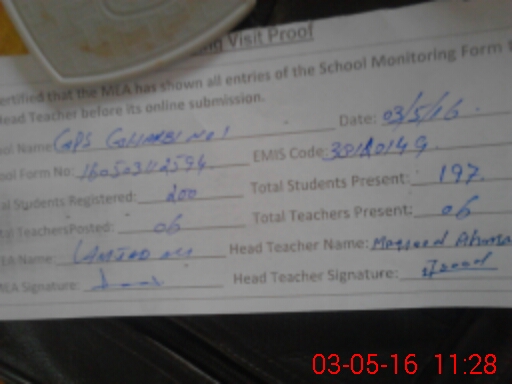 ng Visit Proof
ertified that the MEA has shown all entries of the School Monitoring Form t
Head Teacher before its online submission.
ool Name: GPS No 1 Date: 03/5/16
ool Form No: EMIS Code:
al Students Registered: 200 Total Students Present: 197
tal TeachersPosted: 06 Total Teachers Present: 06
EA Name: Head Teacher Name: Maqsood Ahma
MEA Signature: Head Teacher Signature:
03-05-16 11:28